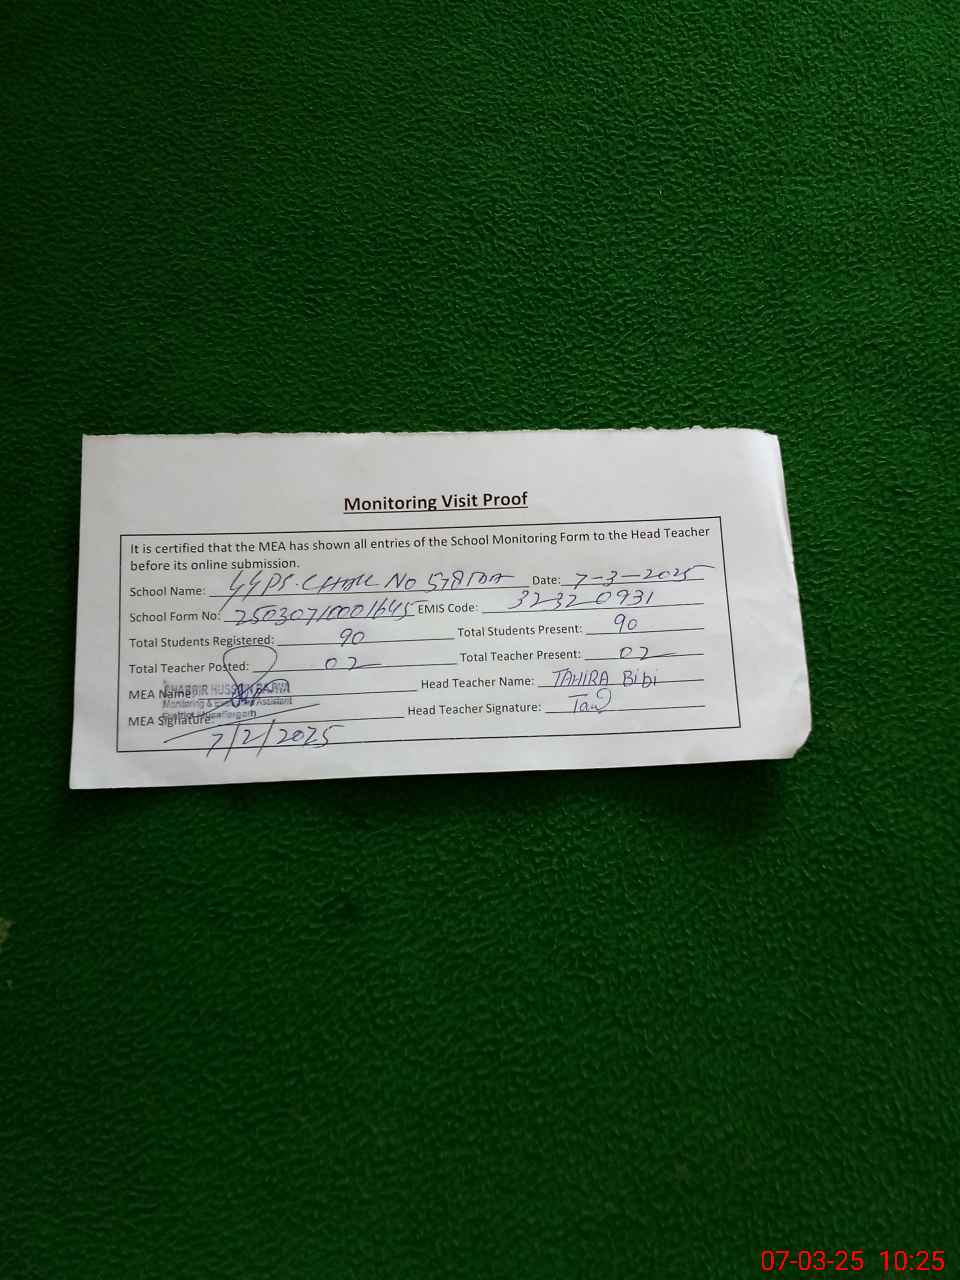 Monitoring Visit Proof
It is certified that the MEA has shown all entries of the School Monitoring Form to the Head Teacher
before its online submission.
School Name: GGPS. CHAK No 578TDA Date: 7-3-2025
School Form No: 25030710001645 EMIS Code: 32320931
Total Students Registered: 90 Total Students Present: 90
Total Teacher Posted: 02 Total Teacher Present: 02
MEA Name: SHABBIR HUSSAIN BAJWA Head Teacher Name: TAHIRA Bibi
Monitoring & Assistant
MEA Signature: District Muzaffargarh Head Teacher Signature:
7/2/2025
07-03-25 10:25